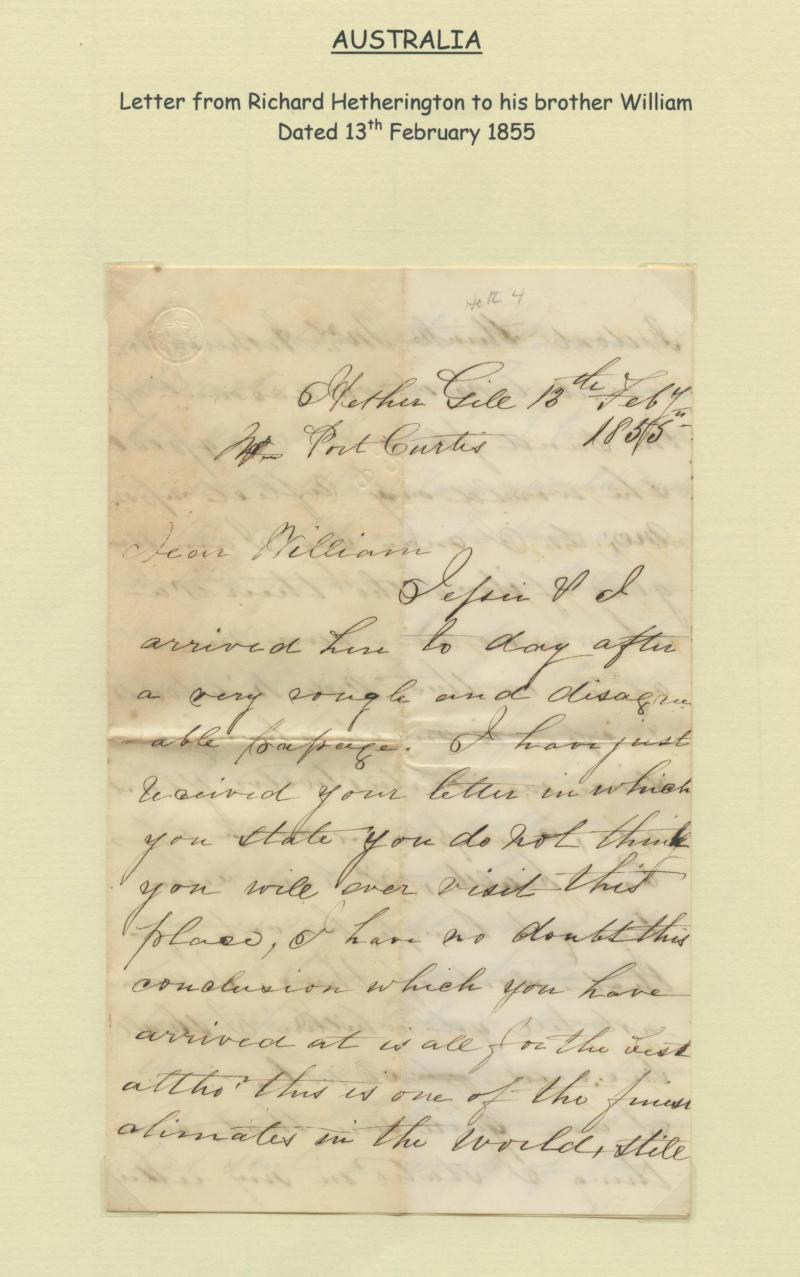 AUSTRALIA
Letter from Richard Hetherington to his brother William
Dated 13th February 1855
Het 4
Nether Gill 13th Feby
Port Curtis 1855
Dear William
Jessie & I
arrived here to day after
a very rough and disagree
able passage. I have just
received your letter in which
you state you do not think
you will ever visit this
place, I have no doubt this
conclusion which you have
arrived at is all for the best
altho' this is one of the finest
climates in the World, still